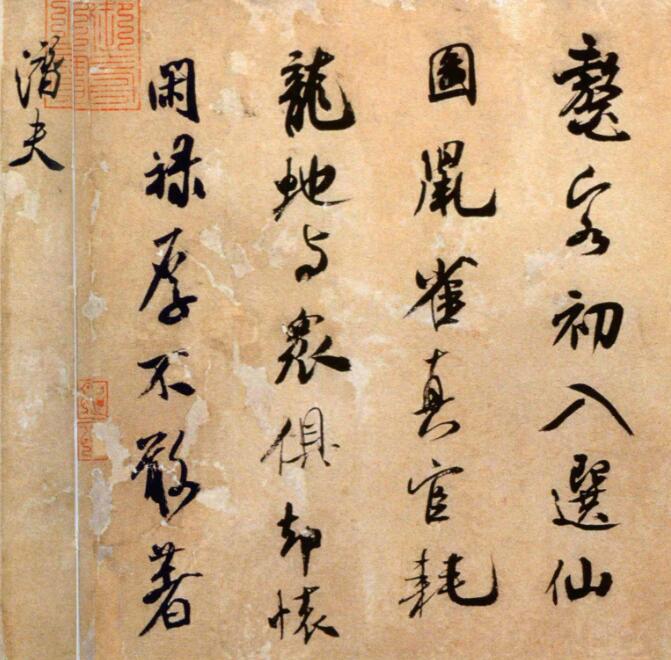 鼇客初入選仙
圖鼠雀真官耗
龍虵与衆俱却懷
閑禄厚不敢著
潛夫